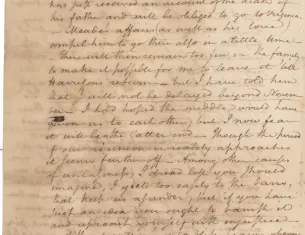 has just received an account of the death of
his father and will be obliged to go to Virginia
Meades affairs (as well as his love)
compel him to go there also in a little time
there will then remain too few in the family
to make it possible for me to leave it till
Harrisons return — but I have told him
that I will not be delayed beyond Novem
ber. I had hoped the middle would have
given us to each other; but I now fear
it will be the latter end. Though the period
of our reunion in reality approaches
it seems further off. Among other causes
of uneasiness, I dread lest you should
imagine, I yield too easily to the bars,
that keep us asunder; but if you have
such an idea you ought to banish it
and reproach yourself with injustice